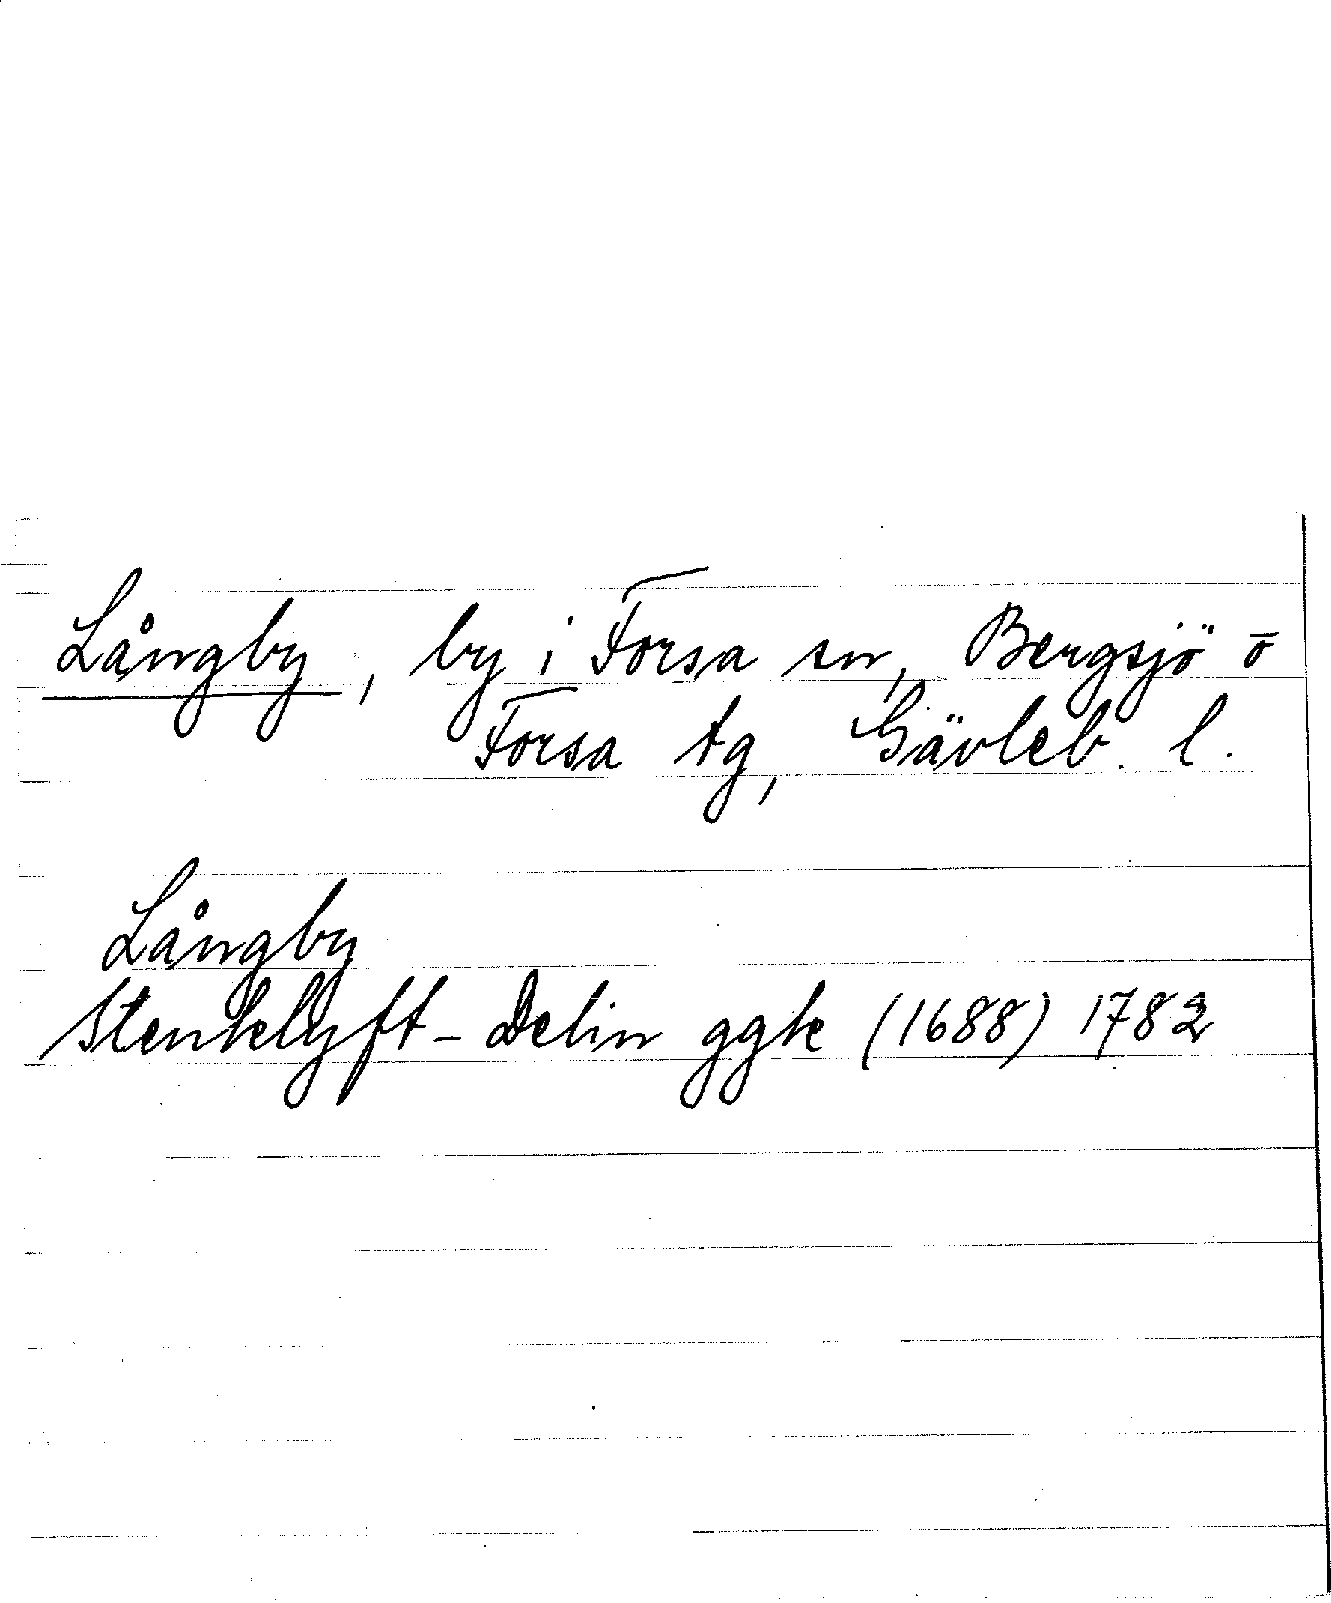 Långby, by i Forsa sn, Bergsjö o
Forsa tg, Gävleb. l.
Långby
Stenklyft-Delin ggk (1688) 1782